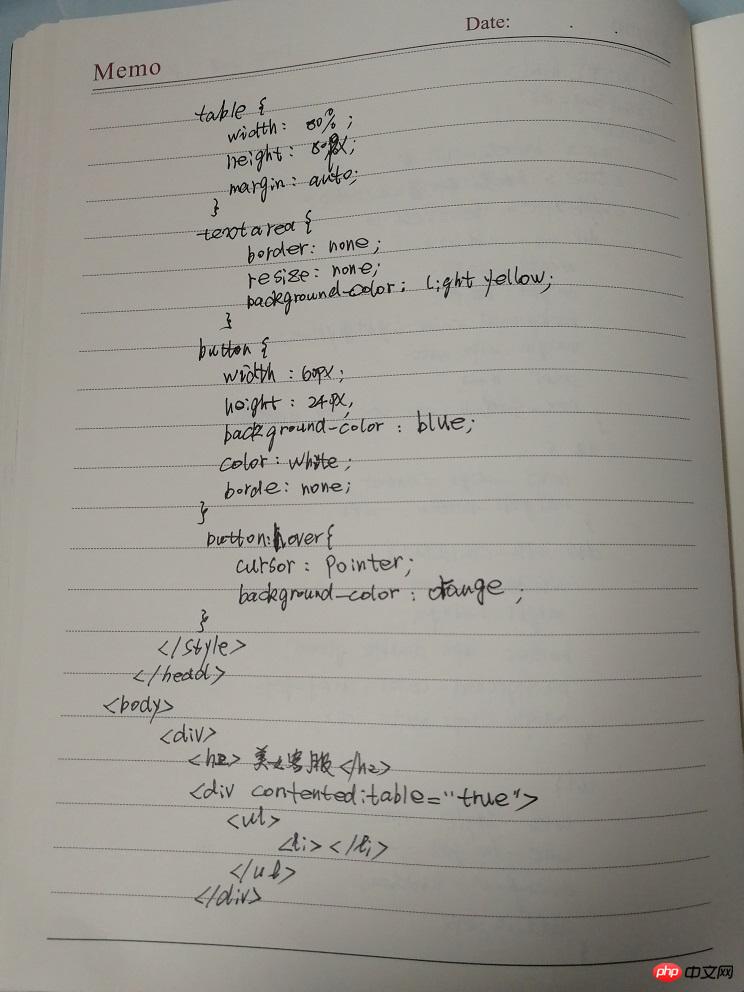 Memo
Date:
table {
width: 80%;
height: 80px;
margin: auto;
}
textarea {
border: none;
resize: none;
background-color: light yellow;
}
button {
width: 60px;
height: 24px;
background-color: blue;
color: white;
borde: none;
}
button:hover{
cursor: pointer;
background-color: orange;
}
</style>
</head>
<body>
<div>
<h2> 客服</h2>
<div contenteditable="true">
<ul>
<li></li>
</ul>
</div>
php 中文网